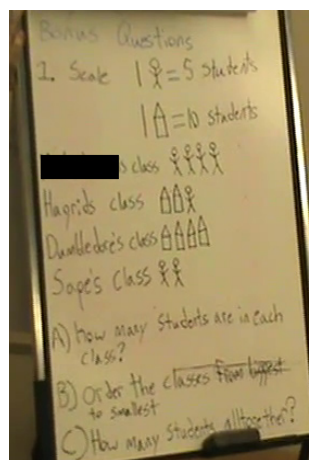 Bonus Questions
1. Scale 1 = 5 students
1 = 10 students
s class
Hagrids class
Dumbledore's class
Snape's class
A) How many students are in each
class?
B) Order the classes from biggest
to smallest
C) How many students alltogether?